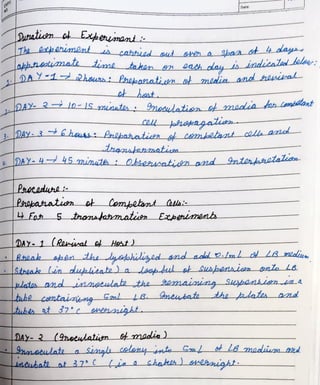 Date
Duration of Experiment :-
The experiment is carried out over a span of 4 days
approximate time taken on each day is indicated below:
1. DAY-1 → 2 hours : Preparation of media and revival
of host.
2. DAY-2 → 10-15 minutes : Inoculation of media for competant
cell propagation
3. DAY-3 → 6 hours : Preparation of competant cells and
transformation
4. DAY-4 → 45 minutes : Observation and Interpretation
Procedure :-
Preparation of Competant Cells :-
4 For 5 transformation Experiments
DAY-1 (Revival of Host)
• Break open the lyophilized and add 0.1ml of LB medium
• Streak (in duplicate) a loopful of suspension onto LB
plates and innoculate the remaining suspension in a
tube containing 5ml LB. Incubate the plates and
tubes at 37°C overnight.
DAY-2 (Inoculation of media)
• Innoculate a single colony into 5mL of LB medium and
incubate at 37°C (in a shaker) overnight.